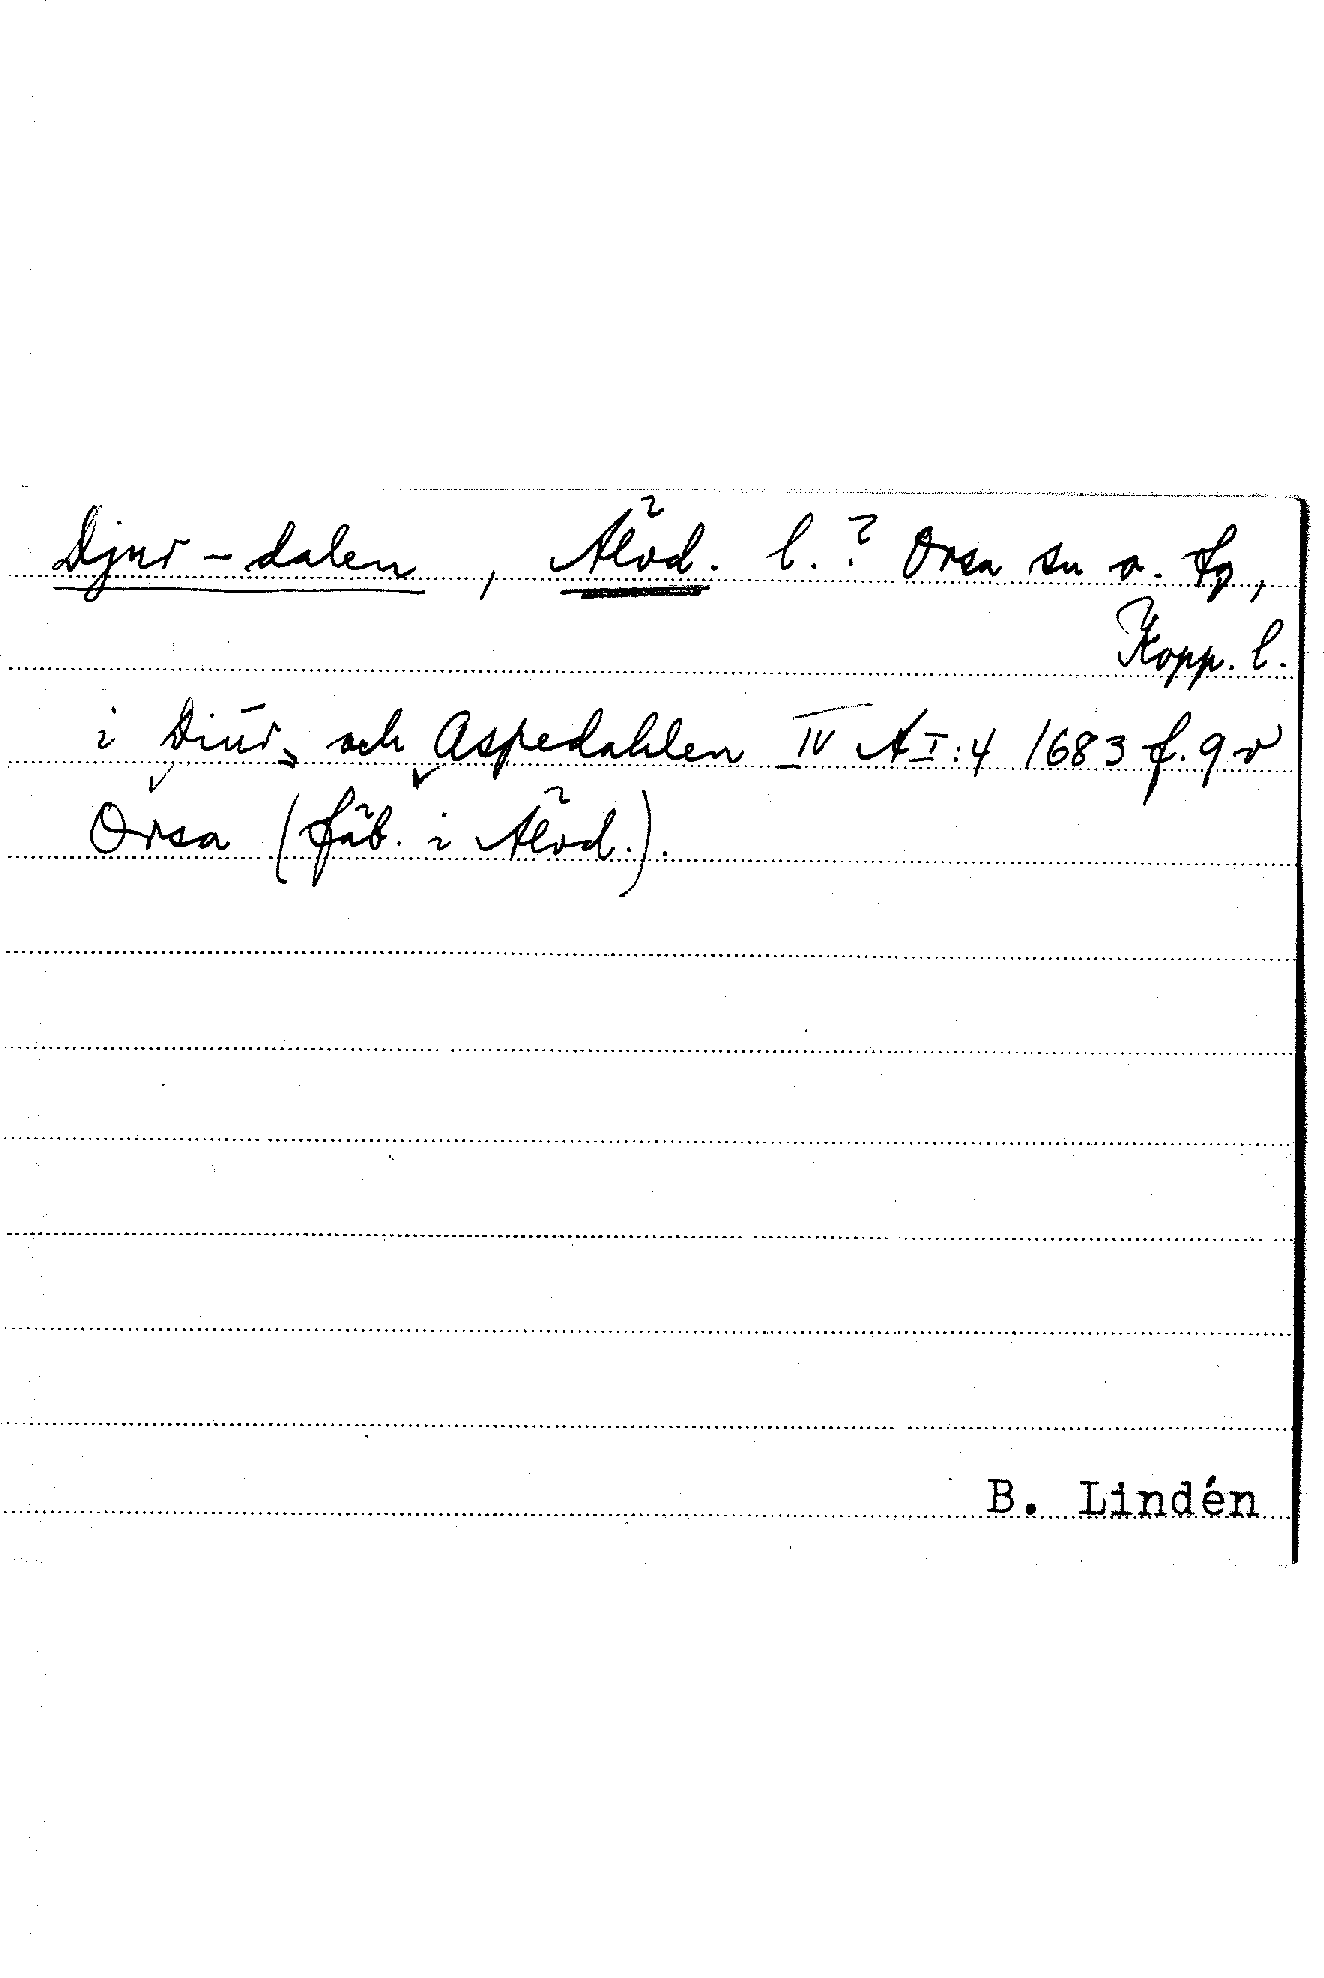 Djur-dalen, Älvd. l.? Orsa sn o. tg,
Kopp. l.
i Diūr, och Aspedahlen IV A I:4 1683 f. 9 v
Orsa (fäb. i Älvd.).
B. Lindén